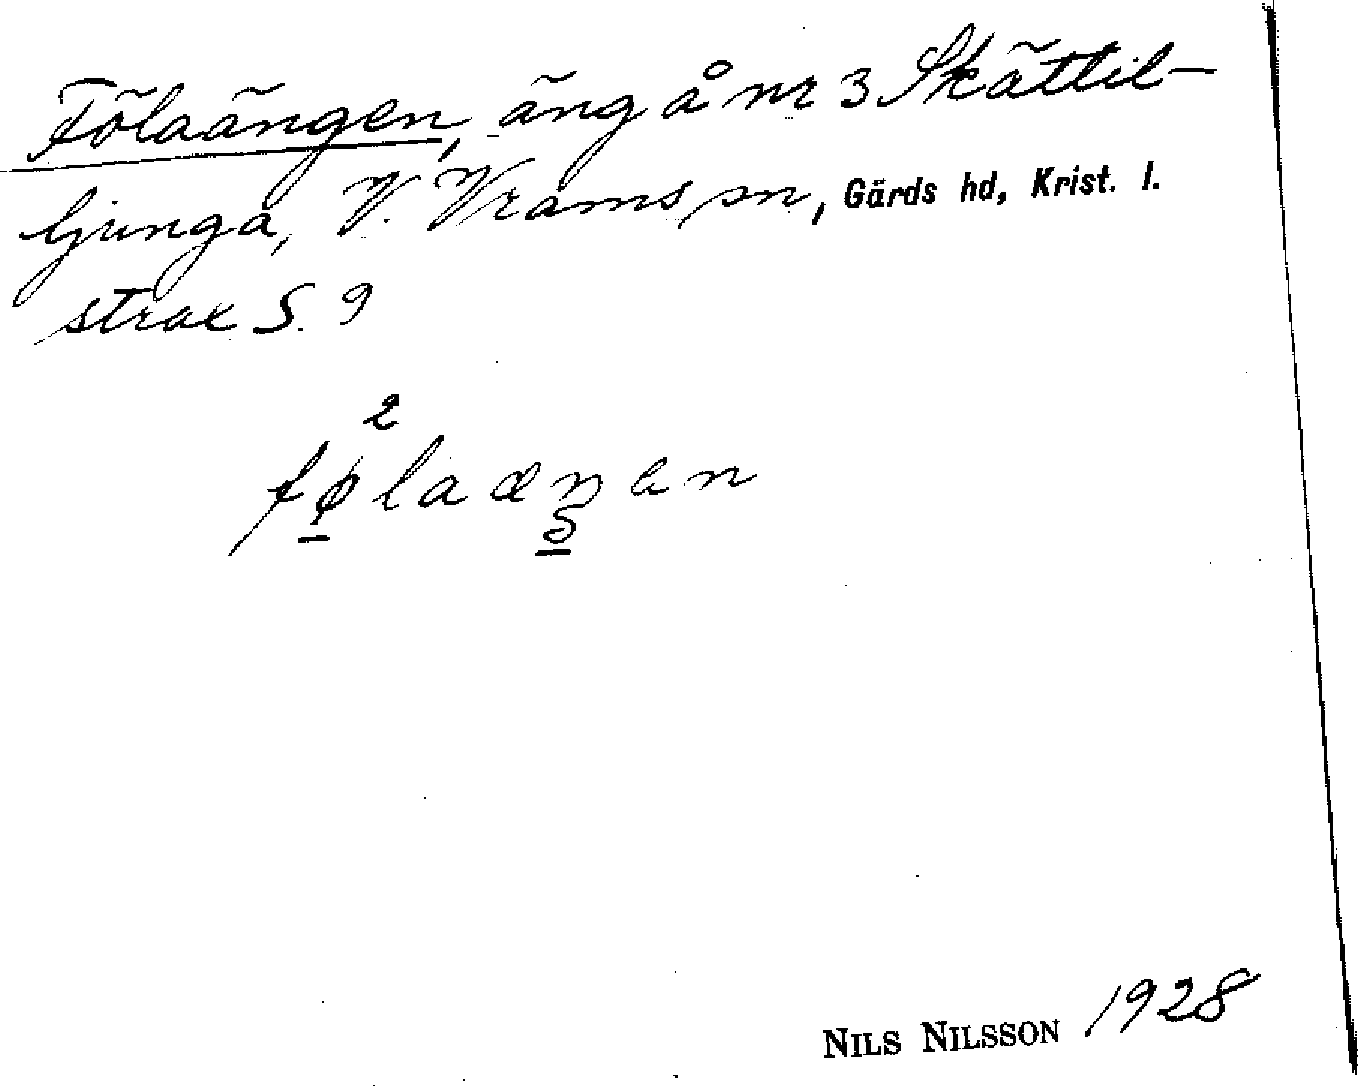 Fölaängen, äng å nr 3 Skättil-
ljunga, V. Vrams sn, Gärds hd, Krist. l.
strax S. 9
2
føl a æŋen
NILS NILSSON 1928